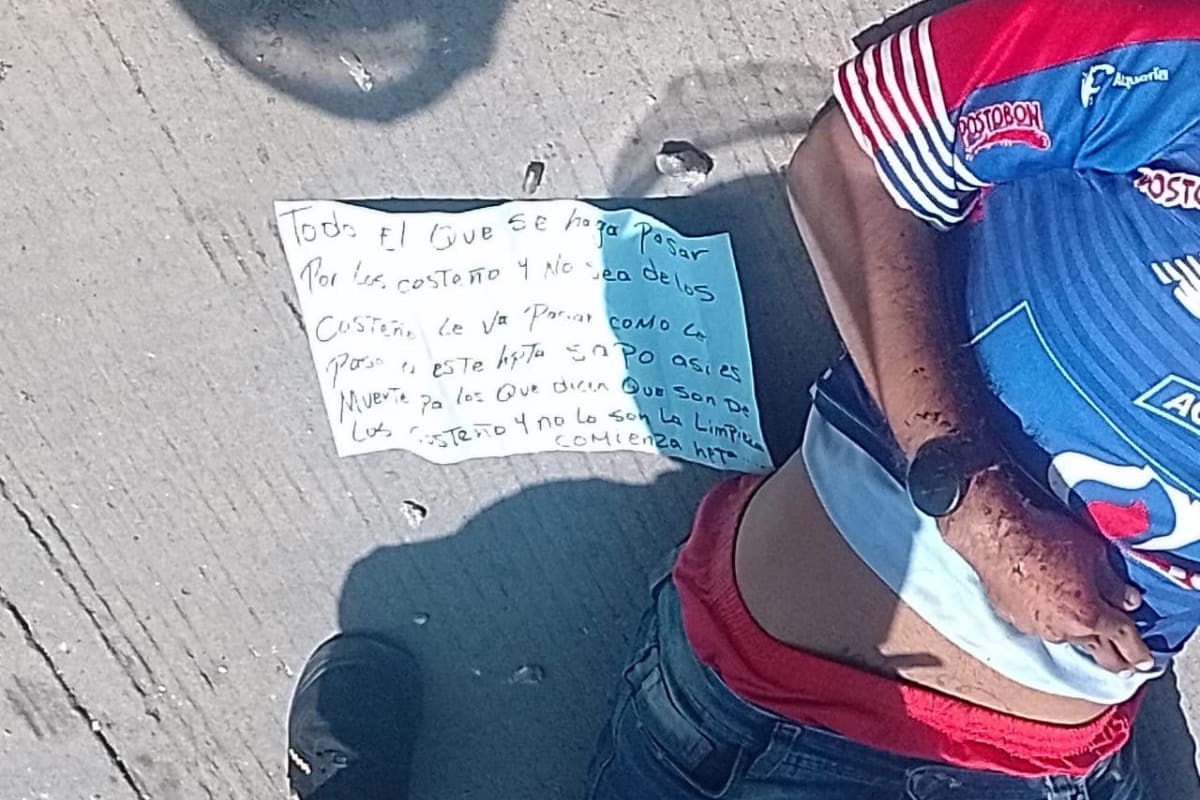 Todo El Que SE haga Pasar
Por Los costeño y No sea de los
Costeño Le Va Pasar como Le
Paso a este hpta Sapo asi es
Muerte pa los Que dicen Que son De
Los Costeño y no Lo son La Limpieza
comienza hpta...
Alquería
POSTOBON
POSTO